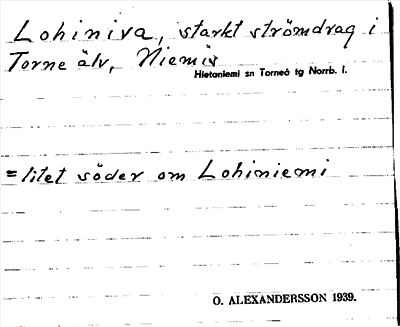 Lohiniva, starkt strömdrag i
Torne älv, Niemis
Hietaniemi sn Torneå tg Norrb. l.
= litet söder om Lohiniemi
O. ALEXANDERSSON 1939.